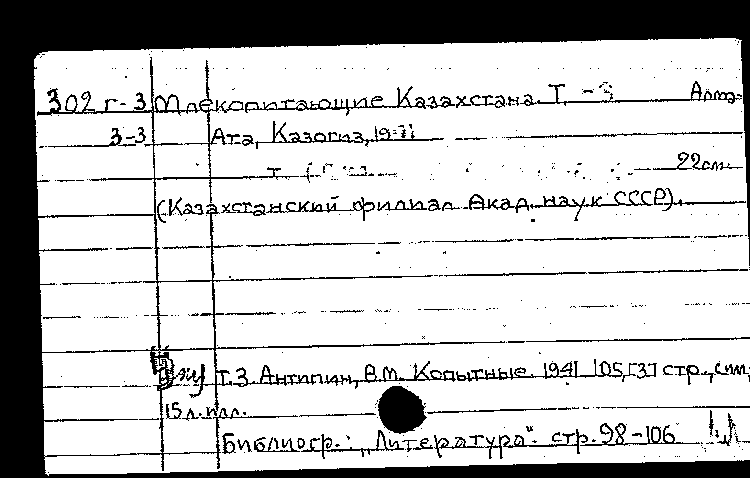 302 г-3 Млекопитающие Казахстана. Т. -3 Алма-
3-3 Ата, Казогиз,
т. 22см.
(Казахстанский филиал Акад. наук СССР).
т.3. Антипин, В.М. Копытные. 1941 105,[3] стр.,
15 л. илл.
Библиогр.: „Литература". стр. 98-106